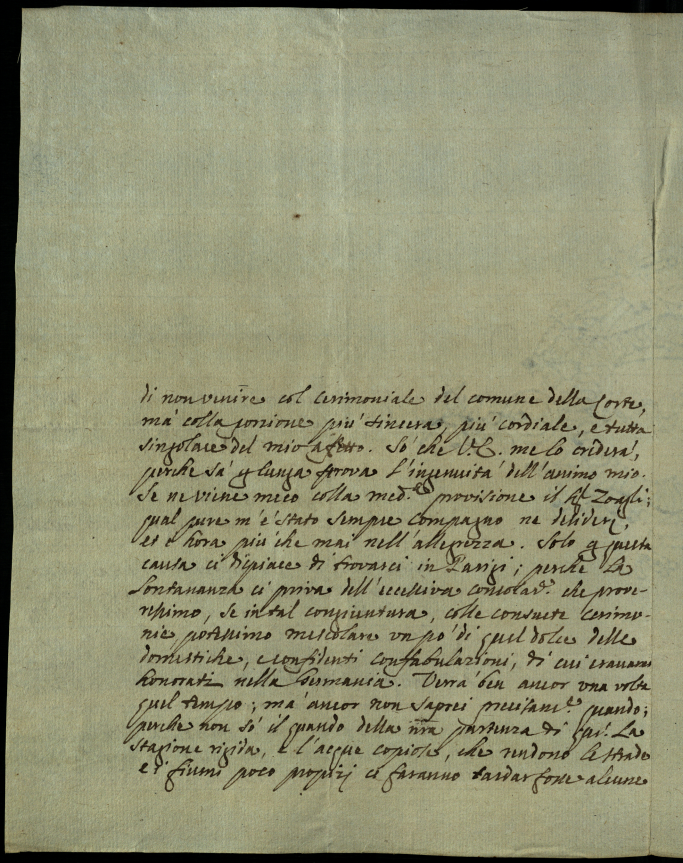 di non venire col cerimoniale del comune della Corte,
mà colla porzione più sincera, più cordiale, e tutta
singolare del mio affetto. Sò che V. E. me lo crederà,
perche sà p lunga prova l'ingenuità dell'animo mio.
Se ne viene meco colla med.ma provisione il Zoagli;
qual pure m'è stato sempre Compagno ne desiderj,
et è hora più che mai nell'allegrezza. Solo p questa
causa ci dispiace di trovarci in Parigi; perche la
lontananza ci priva dell'eccessiva consolaz.e che prove-
ressimo, se in tal congiuntura, colle consuete cerimo-
nie potessimo mescolare un po' di quel dolce delle
domestiche, e confidenti confabulazioni, di cui eravamo
honorati nella Germania. Verrà ben ancor una volta
quel tempo; mà ancor non saprei precisam.e quando;
perche non sò il quando della nra partenza di quì. La
stagione rigida, e l'acque copiose, che rendono le strade
e i fiumi poco proprij ci faranno tardar forse alcune